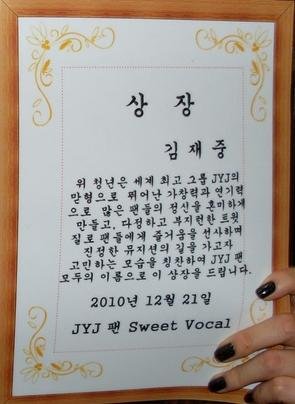 상 장
김 재 중
위 청년은 세계 최고 그룹 JYJ의
맏형으로 뛰어난 가창력과 연기력
으로 많은 팬들의 정신을 혼미하게
만들고, 다정하고 부지런한 트윗
질로 팬들에게 즐거움을 선사하며
진정한 뮤지션의 길을 가고자
고민하는 모습을 칭찬하여 JYJ 팬
모두의 이름으로 이 상장을 드립니다.
2010년 12월 21일
JYJ 팬 Sweet Vocal